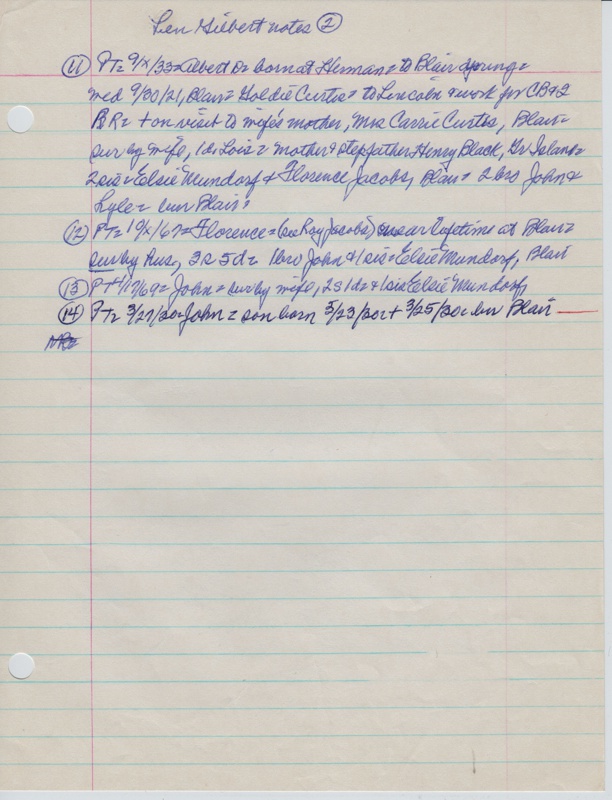 Len Gilbert notes ②
⑪ PT= 9/X/33=Albert D= born at Herman= to Blair young=
med 9/30/21, Blair= Goldie Curtis= to Lincoln & work for CB&Q
RR= + on visit to wife's mother, Mrs Carrie Curtis, Blair=
sur by wife, 1 d Lois= mother & stepfather Henry Black, Gr Island=
2 sis= Elsie Mundorf & Florence Jacobs, Blair= 2 bros John &
Lyle= bur Blair=
⑫ PT= 19/X/67= Florence= (see Ray Jacobs) lifetime at Blair=
sur by hus, 3s 5d= 1 bro John & 1 sis= Elsie Mundorf, Blair
⑬ PT 4/17/69= John= sur by wife, 2s 1d & 1 sis Elsie Mundorf
⑭ PT= 3/27/30= John= son born 3/23/30= + 3/25/30= bur Blair